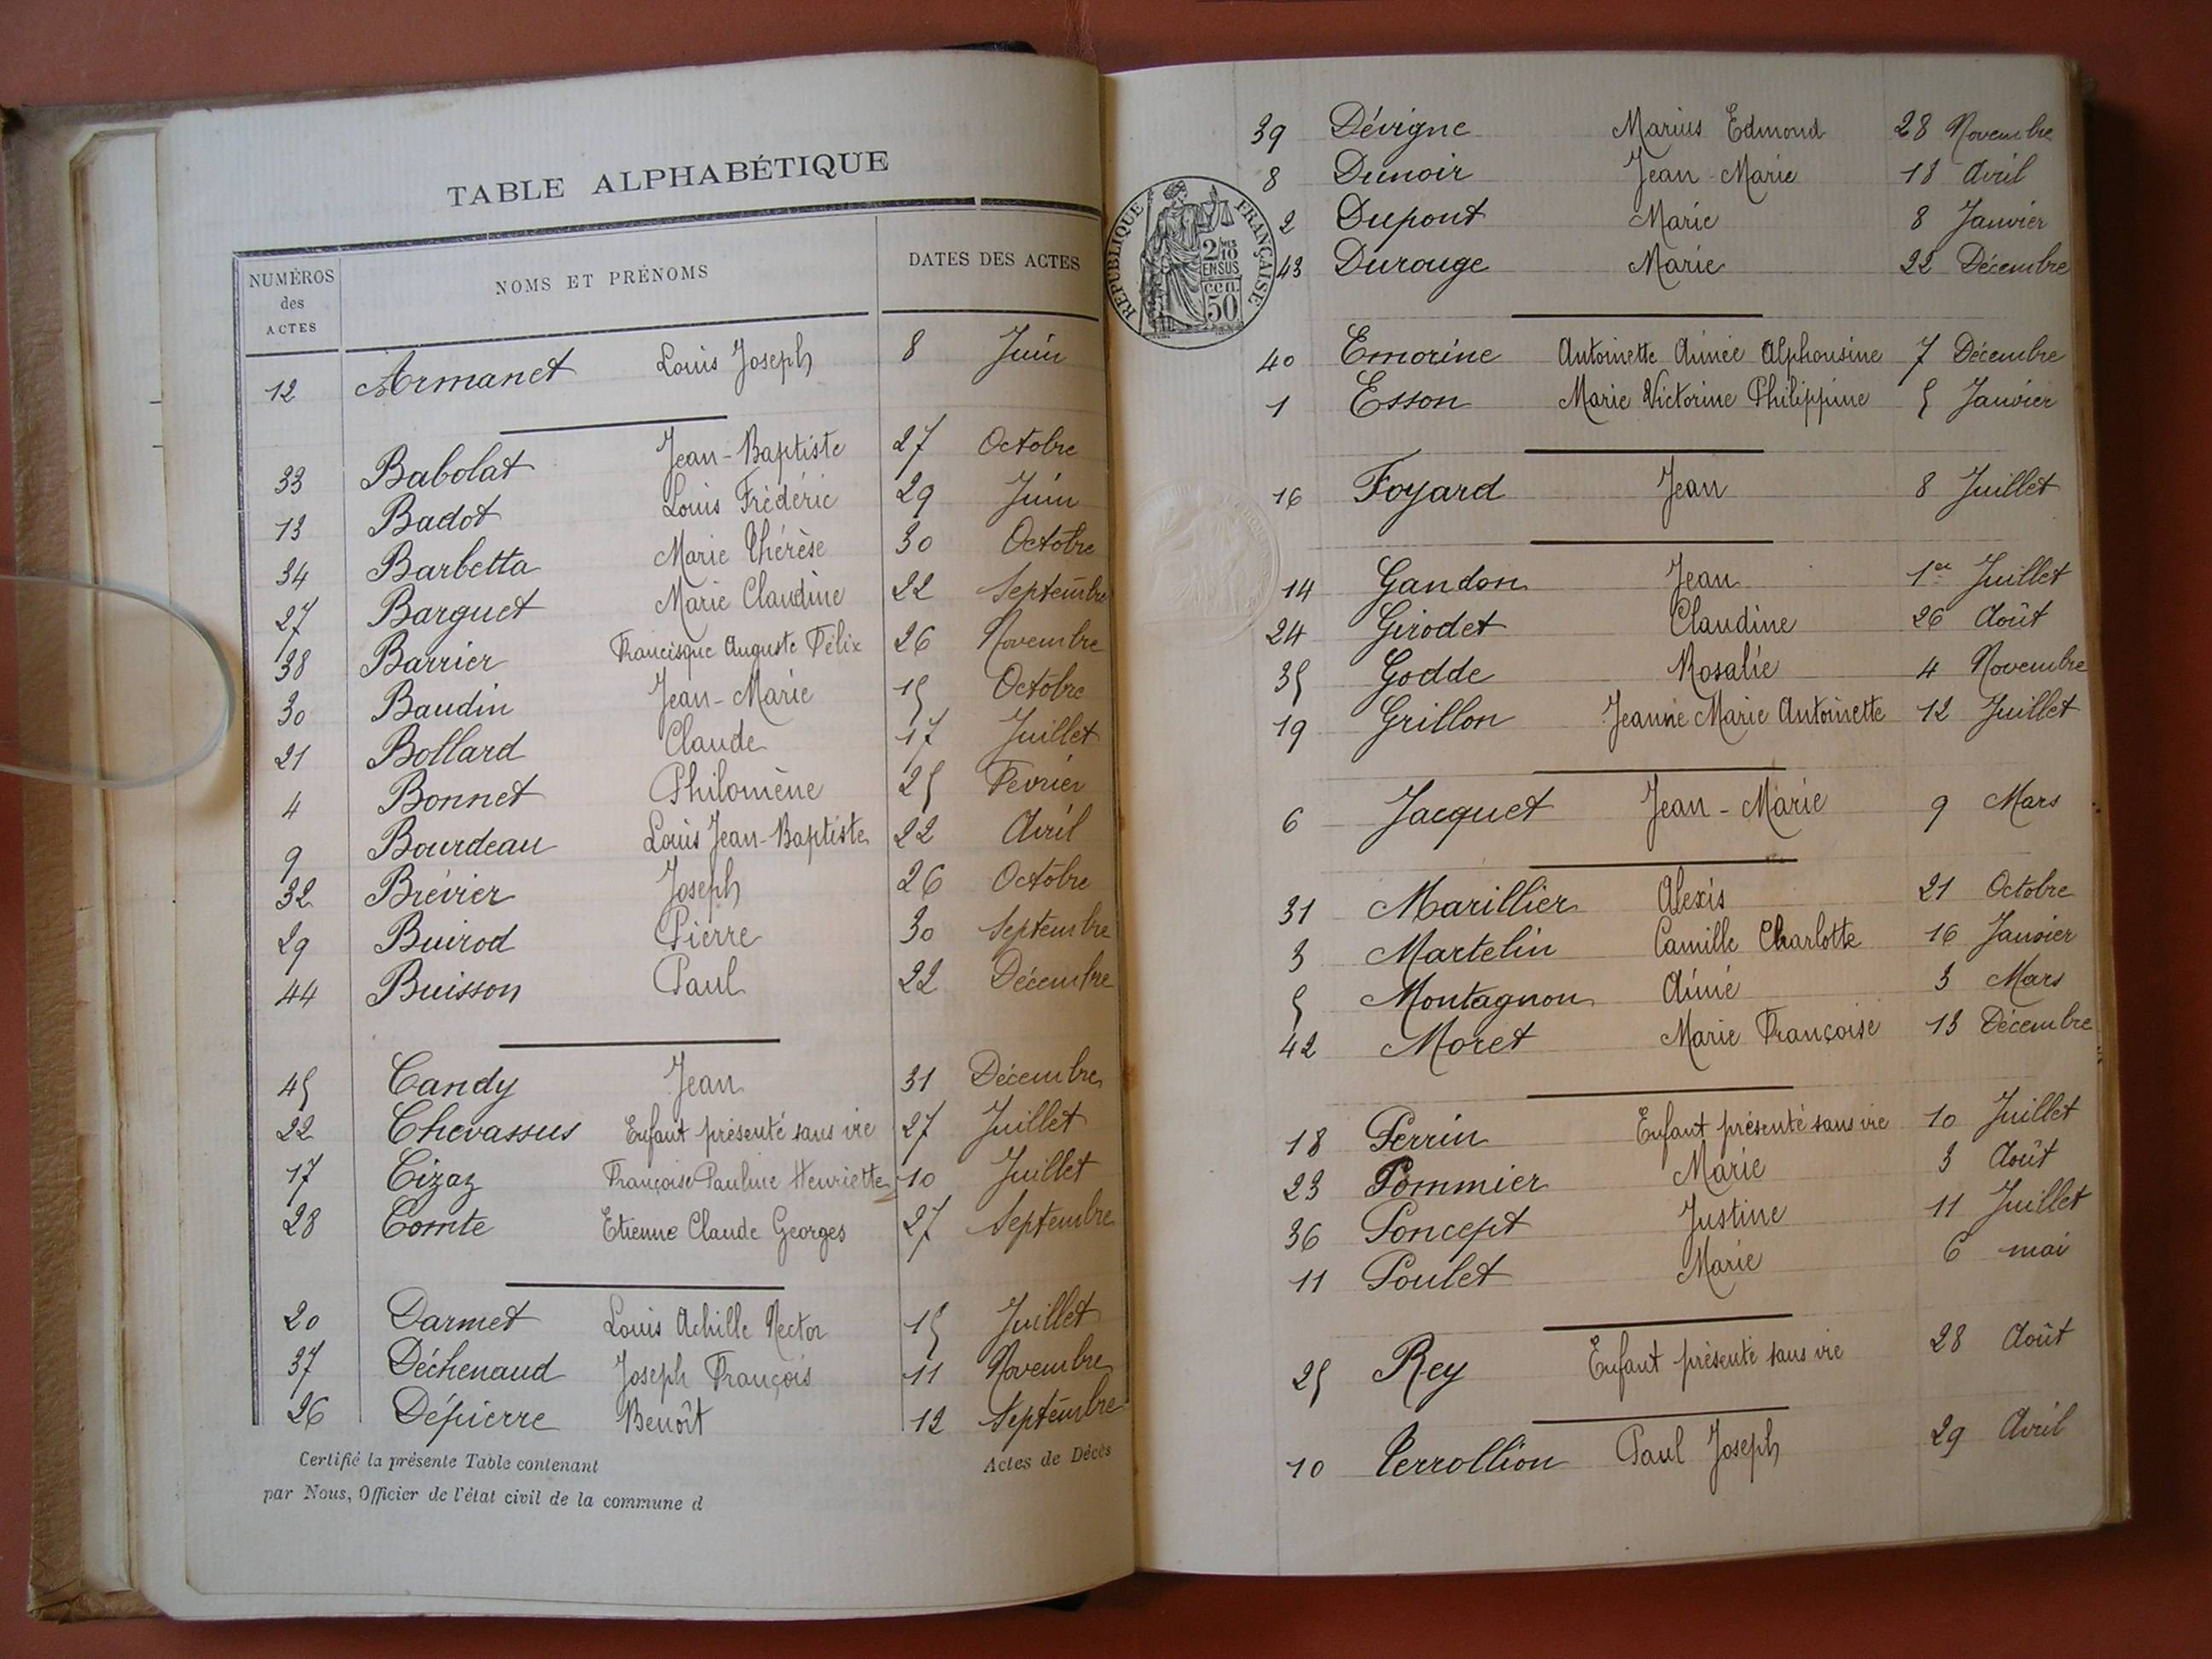 TABLE ALPHABÉTIQUE
NUMÉROS des ACTES NOMS ET PRÉNOMS DATES DES ACTES
12 Armanet Louis Joseph 8 Juin
33 Babolat Jean-Baptiste 27 Octobre
13 Badot Louis Frédéric 29 Juin
34 Barbetta Marie Thérèse 30 Octobre
27 Barguet Marie Claudine 22 Septembre
38 Barrier Francisque Auguste Félix 26 Novembre
30 Baudin Jean-Marie 15 Octobre
21 Bollard Claude 17 Juillet
4 Bonnet Philomène 25 Février
9 Bourdeau Louis Jean-Baptiste 22 Avril
32 Brévier Joseph 26 Octobre
29 Buirod Pierre 30 Septembre
44 Buisson Paul 22 Décembre
45 Candy Jean 31 Décembre
22 Chevassus Enfant présenté sans vie 27 Juillet
17 Cizaz Françoise Pauline Henriette 10 Juillet
28 Comte Etienne Claude Georges 27 Septembre
20 Darmet Louis Achille Hector 15 Juillet
37 Déchenaud Joseph François 11 Novembre
26 Dépierre Benoît 12 Septembre
Certifié la présente Table contenant Actes de Décès
par Nous, Officier de l'état civil de la commune d
39 Dévigne Marius Edmond 28 Novembre
8 Dunoir Jean-Marie 18 Avril
2 Dupont Marie 8 Janvier
43 Durouge Marie 22 Décembre
RÉPUBLIQUE FRANÇAISE
2/10
EN SUS
50 cen.
40 Emorine Antoinette Aimée Alphonsine 7 Décembre
1 Esson Marie Victorine Philippine 5 Janvier
16 Foyard Jean 8 Juillet
14 Gandon Jean 1er Juillet
24 Girodet Claudine 26 Août
35 Godde Rosalie 4 Novembre
19 Grillon Jeanne Marie Antoinette 12 Juillet
6 Jacquet Jean-Marie 9 Mars
31 Marillier Alexis 21 Octobre
3 Martelin Camille Charlotte 16 Janvier
5 Montagnon Aimé 3 Mars
42 Moret Marie Françoise 13 Décembre
18 Perrin Enfant présenté sans vie 10 Juillet
23 Pommier Marie 3 Août
36 Poncept Justine 11 Juillet
11 Poulet Marie 6 mai
25 Rey Enfant présenté sans vie 28 Août
10 Verrollion Paul Joseph 29 Avril